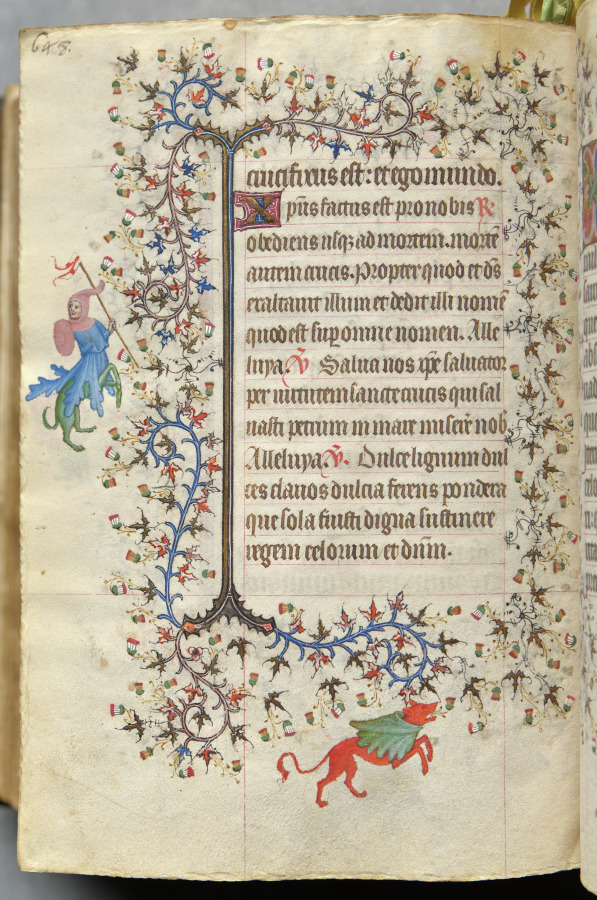 648.
crucifixus est: et ego mundo.
Xp̄us factus est pro nobis ℟
obediens usq̄ ad mortem. mortē
autem crucis. Propter quod et dˢ
exaltauit illum et dedit illi nomē
quod est sup̄ omne nomen. Alle
luya. ℣ Salua nos xp̄e saluator
per uirtutem sancte crucis qui sal
uasti petrum in mare miserē nob̄.
Alleluya. ℣. Dulce lignum dul
ces clauos dulcia ferens pondera
que sola fuisti digna sustinere
regem celorum et dn̄m.